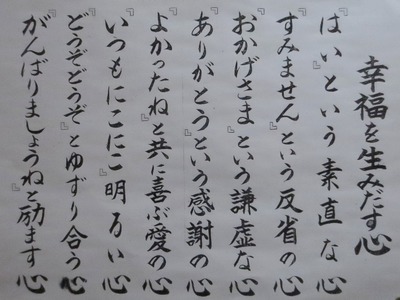 幸福を生みだす心
『はい』という素直な心
『すみません』という反省の心
『おかげさま』という謙虚な心
『ありがとう』という感謝の心
『よかったね』と共に喜ぶ愛の心
『いつもにこにこ』明るい心
『どうぞどうぞ』とゆずり合う心
『がんばりましょうね』と励ます心